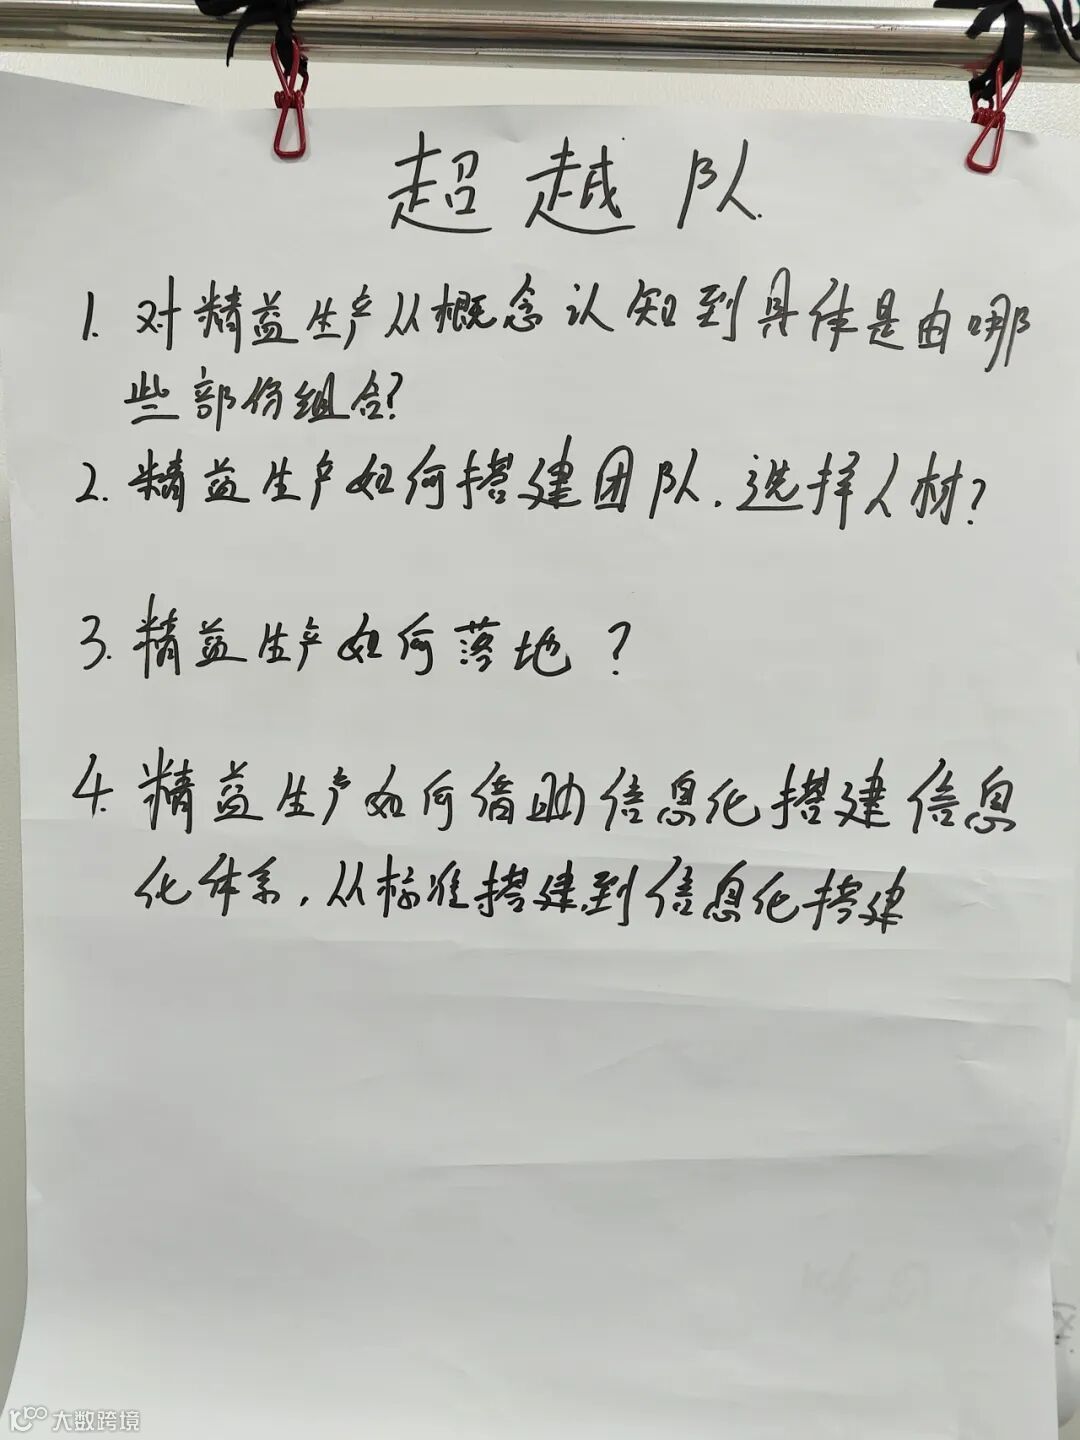 超越队
1. 对精益生产从概念认知到具体是由哪
些部份组合?
2. 精益生产如何搭建团队.选择人材?
3. 精益生产如何落地?
4. 精益生产如何借助信息化搭建信息
化体系,从标准搭建到信息化搭建
大数跨境